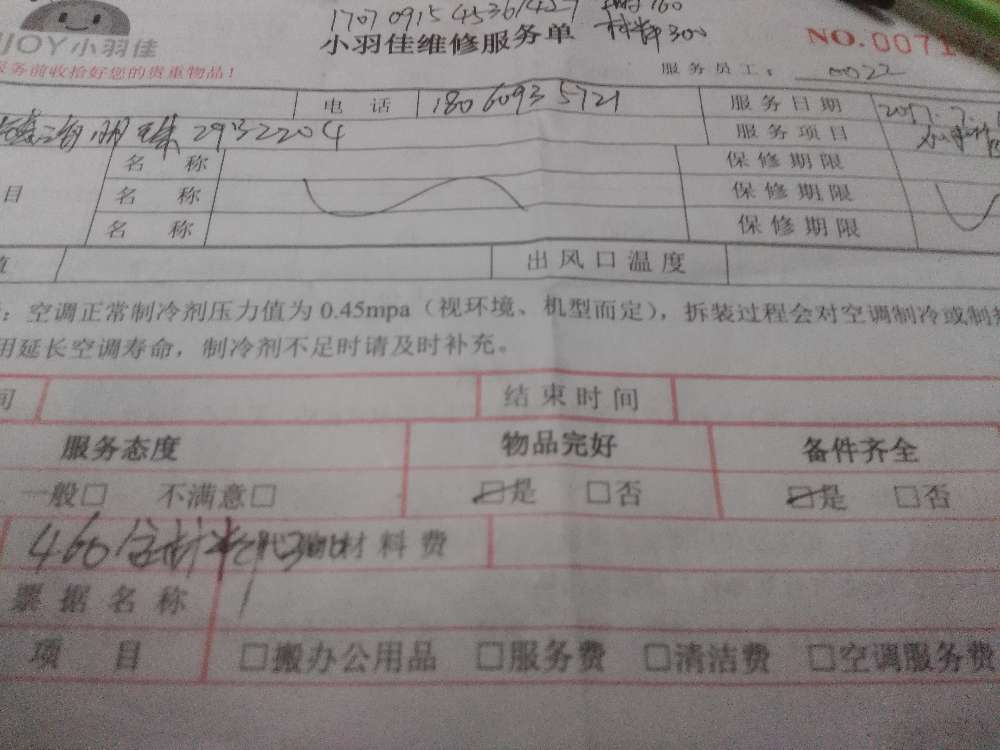 JOY小羽佳
小羽佳维修服务单
材料300
NO.0071
服务前收拾好您的贵重物品！
服务员工：
电 话 18060935721 服务日期 2017.7.
2932204 服务项目
名 称 保修期限
目 名 称 保修期限
名 称 保修期限
值 出风口温度
：空调正常制冷剂压力值为0.45mpa（视环境、机型而定），拆装过程会对空调制冷或制热
用延长空调寿命，制冷剂不足时请及时补充。
间 结束时间
服务态度 物品完好 备件齐全
一般□ 不满意□ ☑是 □否 ☑是 □否
460含材料 材料费
票据名称
项 目 □搬办公用品 □服务费 □清洁费 □空调服务费